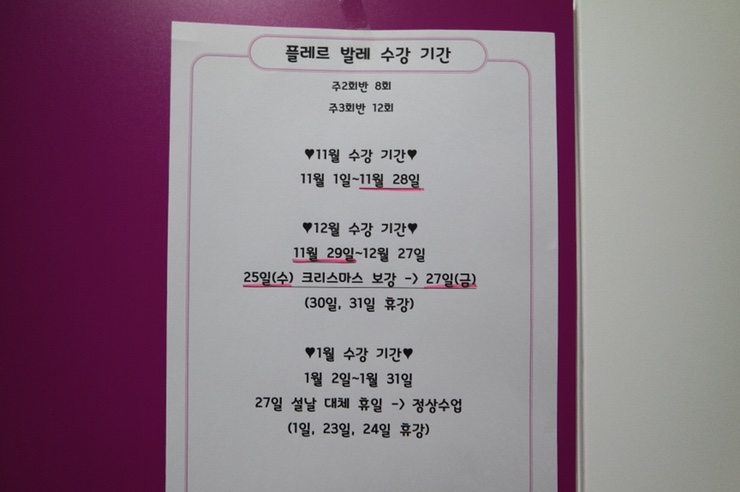 플레르 발레 수강 기간
주2회반 8회
주3회반 12회
♥11월 수강 기간♥
11월 1일~11월 28일
♥12월 수강 기간♥
11월 29일~12월 27일
25일(수) 크리스마스 보강 -> 27일(금)
(30일, 31일 휴강)
♥1월 수강 기간♥
1월 2일~1월 31일
27일 설날 대체 휴일 -> 정상수업
(1일, 23일, 24일 휴강)